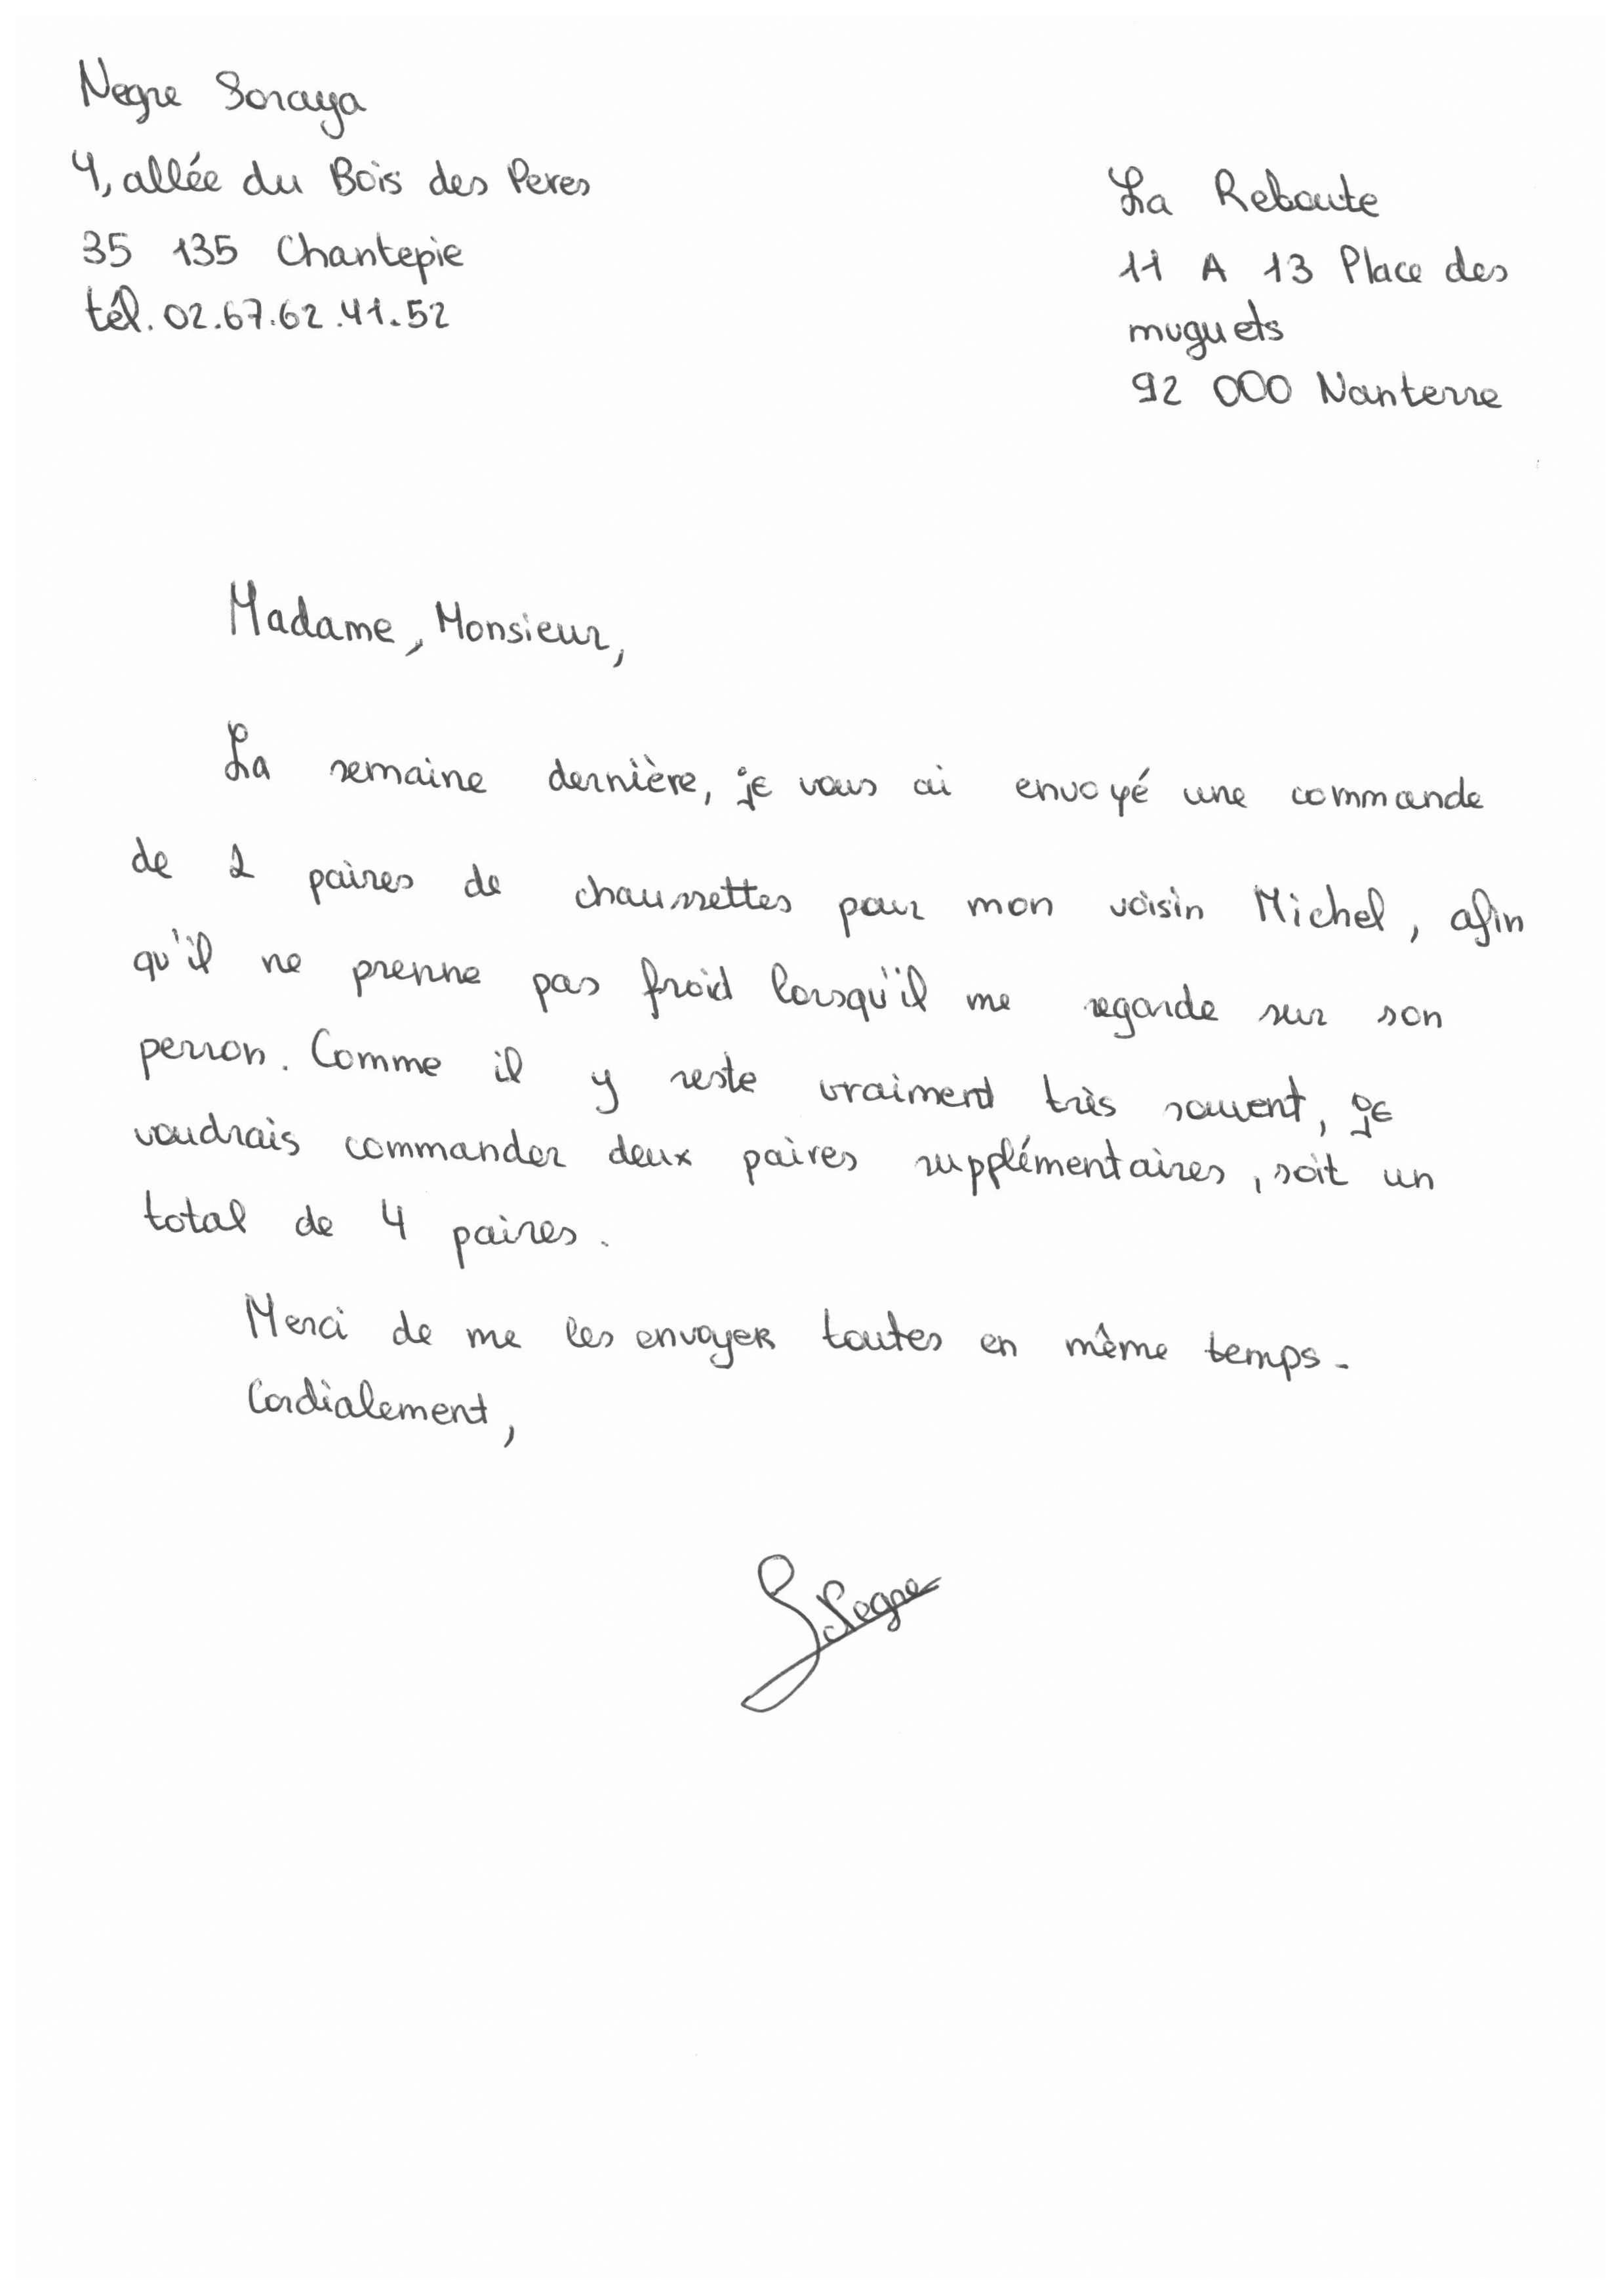 Negre Soraya
4, allée du Bois des Peres
35 135 Chantepie
tél. 02.67.62.41.52
La Reboute
11 A 13 Place des
muguets
92 000 Nanterre
Madame, Monsieur,
La semaine dernière, je vous ai envoyé une commande
de 2 paires de chaussettes pour mon voisin Michel, afin
qu'il ne prenne pas froid lorsqu'il me regarde sur son
perron. Comme il y reste vraiment très souvent, je
voudrais commander deux paires supplémentaires, soit un
total de 4 paires.
Merci de me les envoyer toutes en même temps.
Cordialement,
SNegre